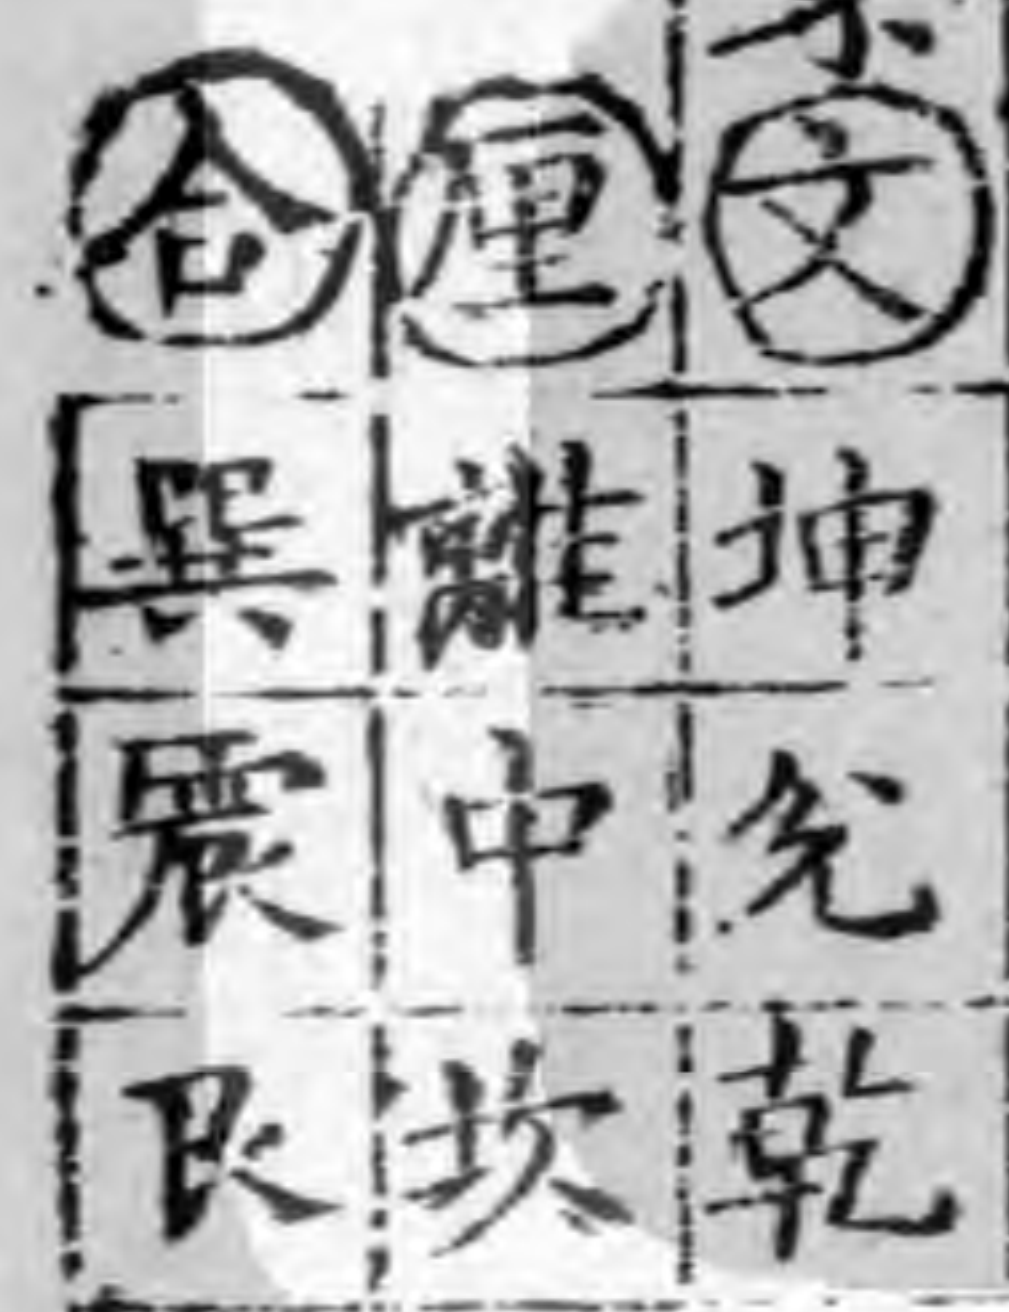 文坤兌乾
厘離中坎
合巽震艮